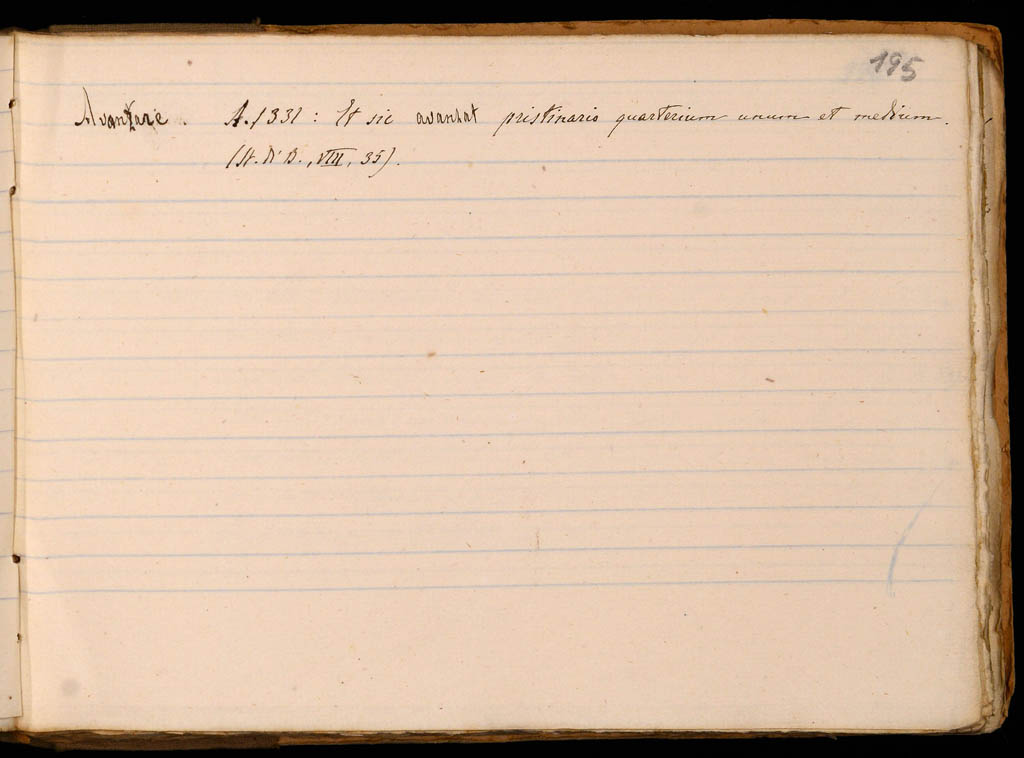 195
Avanzare. A. 1331: Et sic avanzat pristinario quarterium unum et medium.
(St. d'A., VIII, 35).